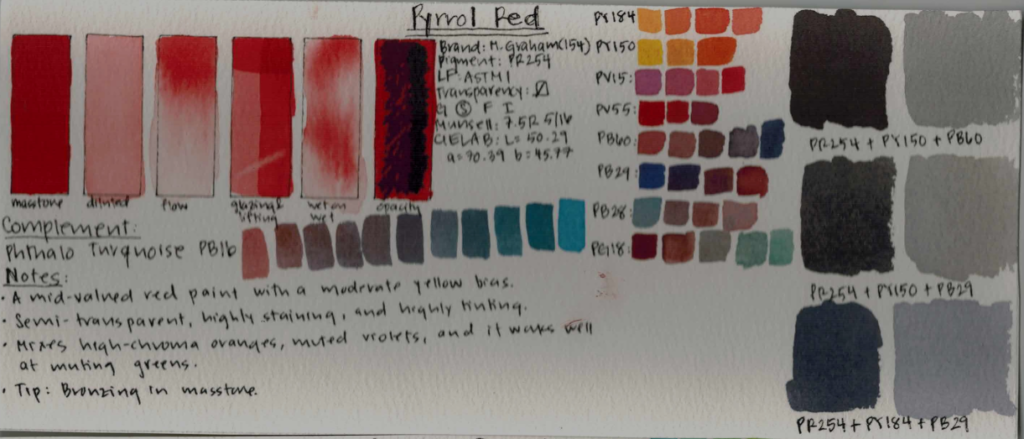 Pyrrol Red
Brand: M. Graham (154)
Pigment: PR254
LF: ASTM I
Transparency:
G S F I
Munsell: 7.5R 5/16
CIELAB: L= 50.29
a=70.39 b=45.77
masstone
diluted
flow
glazing &
lifting
wet on
wet
opacity
Complement:
Phthalo Turquoise PB16
Notes:
· A mid-valued red paint with a moderate yellow bias.
· Semi-transparent, highly staining, and highly tinting.
· Mixes high-chroma oranges, muted violets, and it works well
at muting greens.
· Tip: Bronzing in masstone.
PY184
PY150
PV15:
PV55:
PB60:
PB29:
PB28:
PG18:
PR254 + PY150 + PB60
PR254 + PY150 + PB29
PR254 + PY184 + PB29